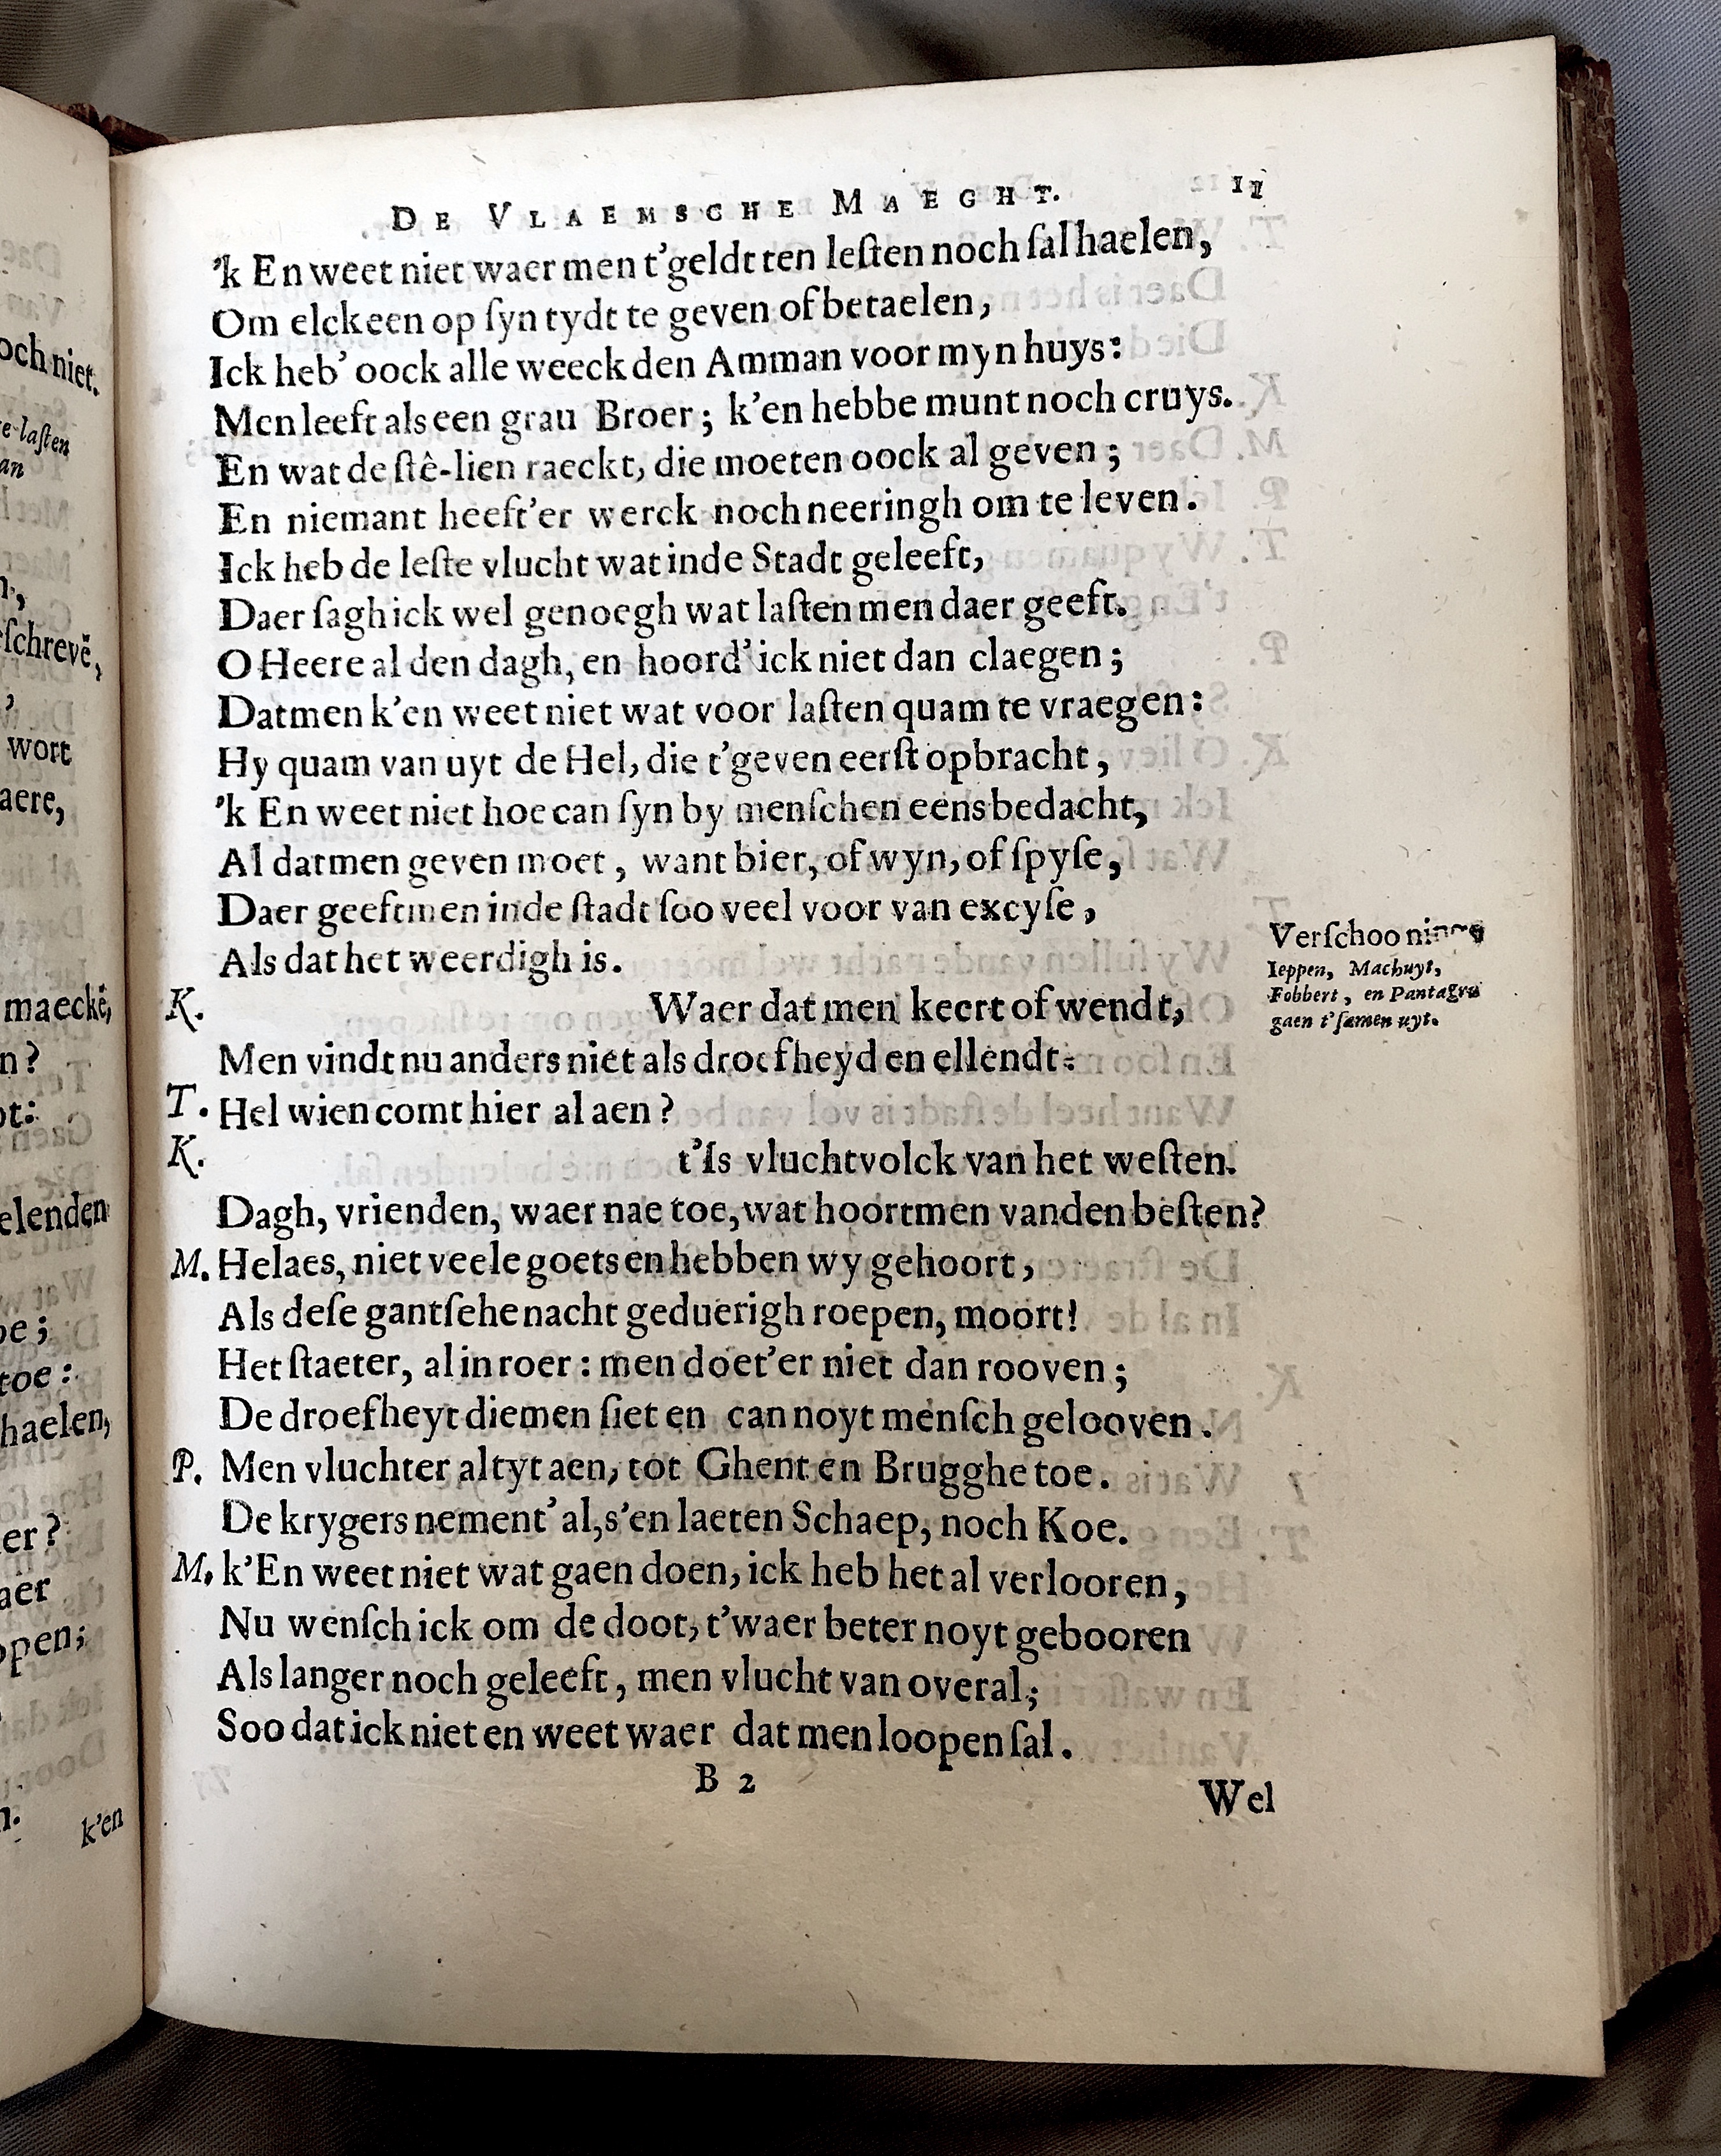 och niet.
e-laſten
an
n,
ſchrevẽ,
,
wort
aere,
maeckẽ,
n?
ot:
elenden
oe;
toe:
haelen,
er?
aer
open;
n.
k'en
DE VLAEMSCHE MAEGHT. 11
'k En weet niet waer men t'geldt ten leſten noch ſal haelen,
Om elckeen op ſyn tydt te geven of betaelen,
Ick heb' oock alle weeck den Amman voor myn huys:
Men leeft als een grau Broer; k'en hebbe munt noch cruys.
En wat de ſtê-lien raeckt, die moeten oock al geven;
En niemant heeft'er werck noch neeringh om te leven.
Ick heb de leſte vlucht wat inde Stadt geleeft,
Daer ſagh ick wel genoegh wat laſten men daer geeft.
O Heere al den dagh, en hoord' ick niet dan claegen;
Datmen k'en weet niet wat voor laſten quam te vraegen:
Hy quam van uyt de Hel, die t'geven eerſt opbracht,
'k En weet niet hoe can ſyn by menſchen eens bedacht,
Al datmen geven moet, want bier, of wyn, of ſpyſe,
Daer geeftmen inde ſtadt ſoo veel voor van excyſe,
Als dat het weerdigh is.
Verſchooninge
Ieppen, Machuyt,
Fobbert, en Pantagru
gaen t'ſamen uyt.
K. Waer dat men keert of wendt,
Men vindt nu anders niet als droefheyd en ellendt:
T. Hel wien comt hier al aen?
K. t'Is vluchtvolck van het weſten.
Dagh, vrienden, waer nae toe, wat hoortmen vanden beſten?
M. Helaes, niet veele goets en hebben wy gehoort,
Als deſe gantſehe nacht geduerigh roepen, moort!
Het ſtaeter, al in roer: men doet'er niet dan rooven;
De droefheyt diemen ſiet en can noyt menſch gelooven.
P. Men vluchter altyt aen, tot Ghent en Brugghe toe.
De krygers nement' al, s'en laeten Schaep, noch Koe.
M. k'En weet niet wat gaen doen, ick heb het al verlooren,
Nu wenſch ick om de doot, t'waer beter noyt gebooren
Als langer noch geleeft, men vlucht van overal;
Soo dat ick niet en weet waer dat men loopen ſal.
B 2
Wel